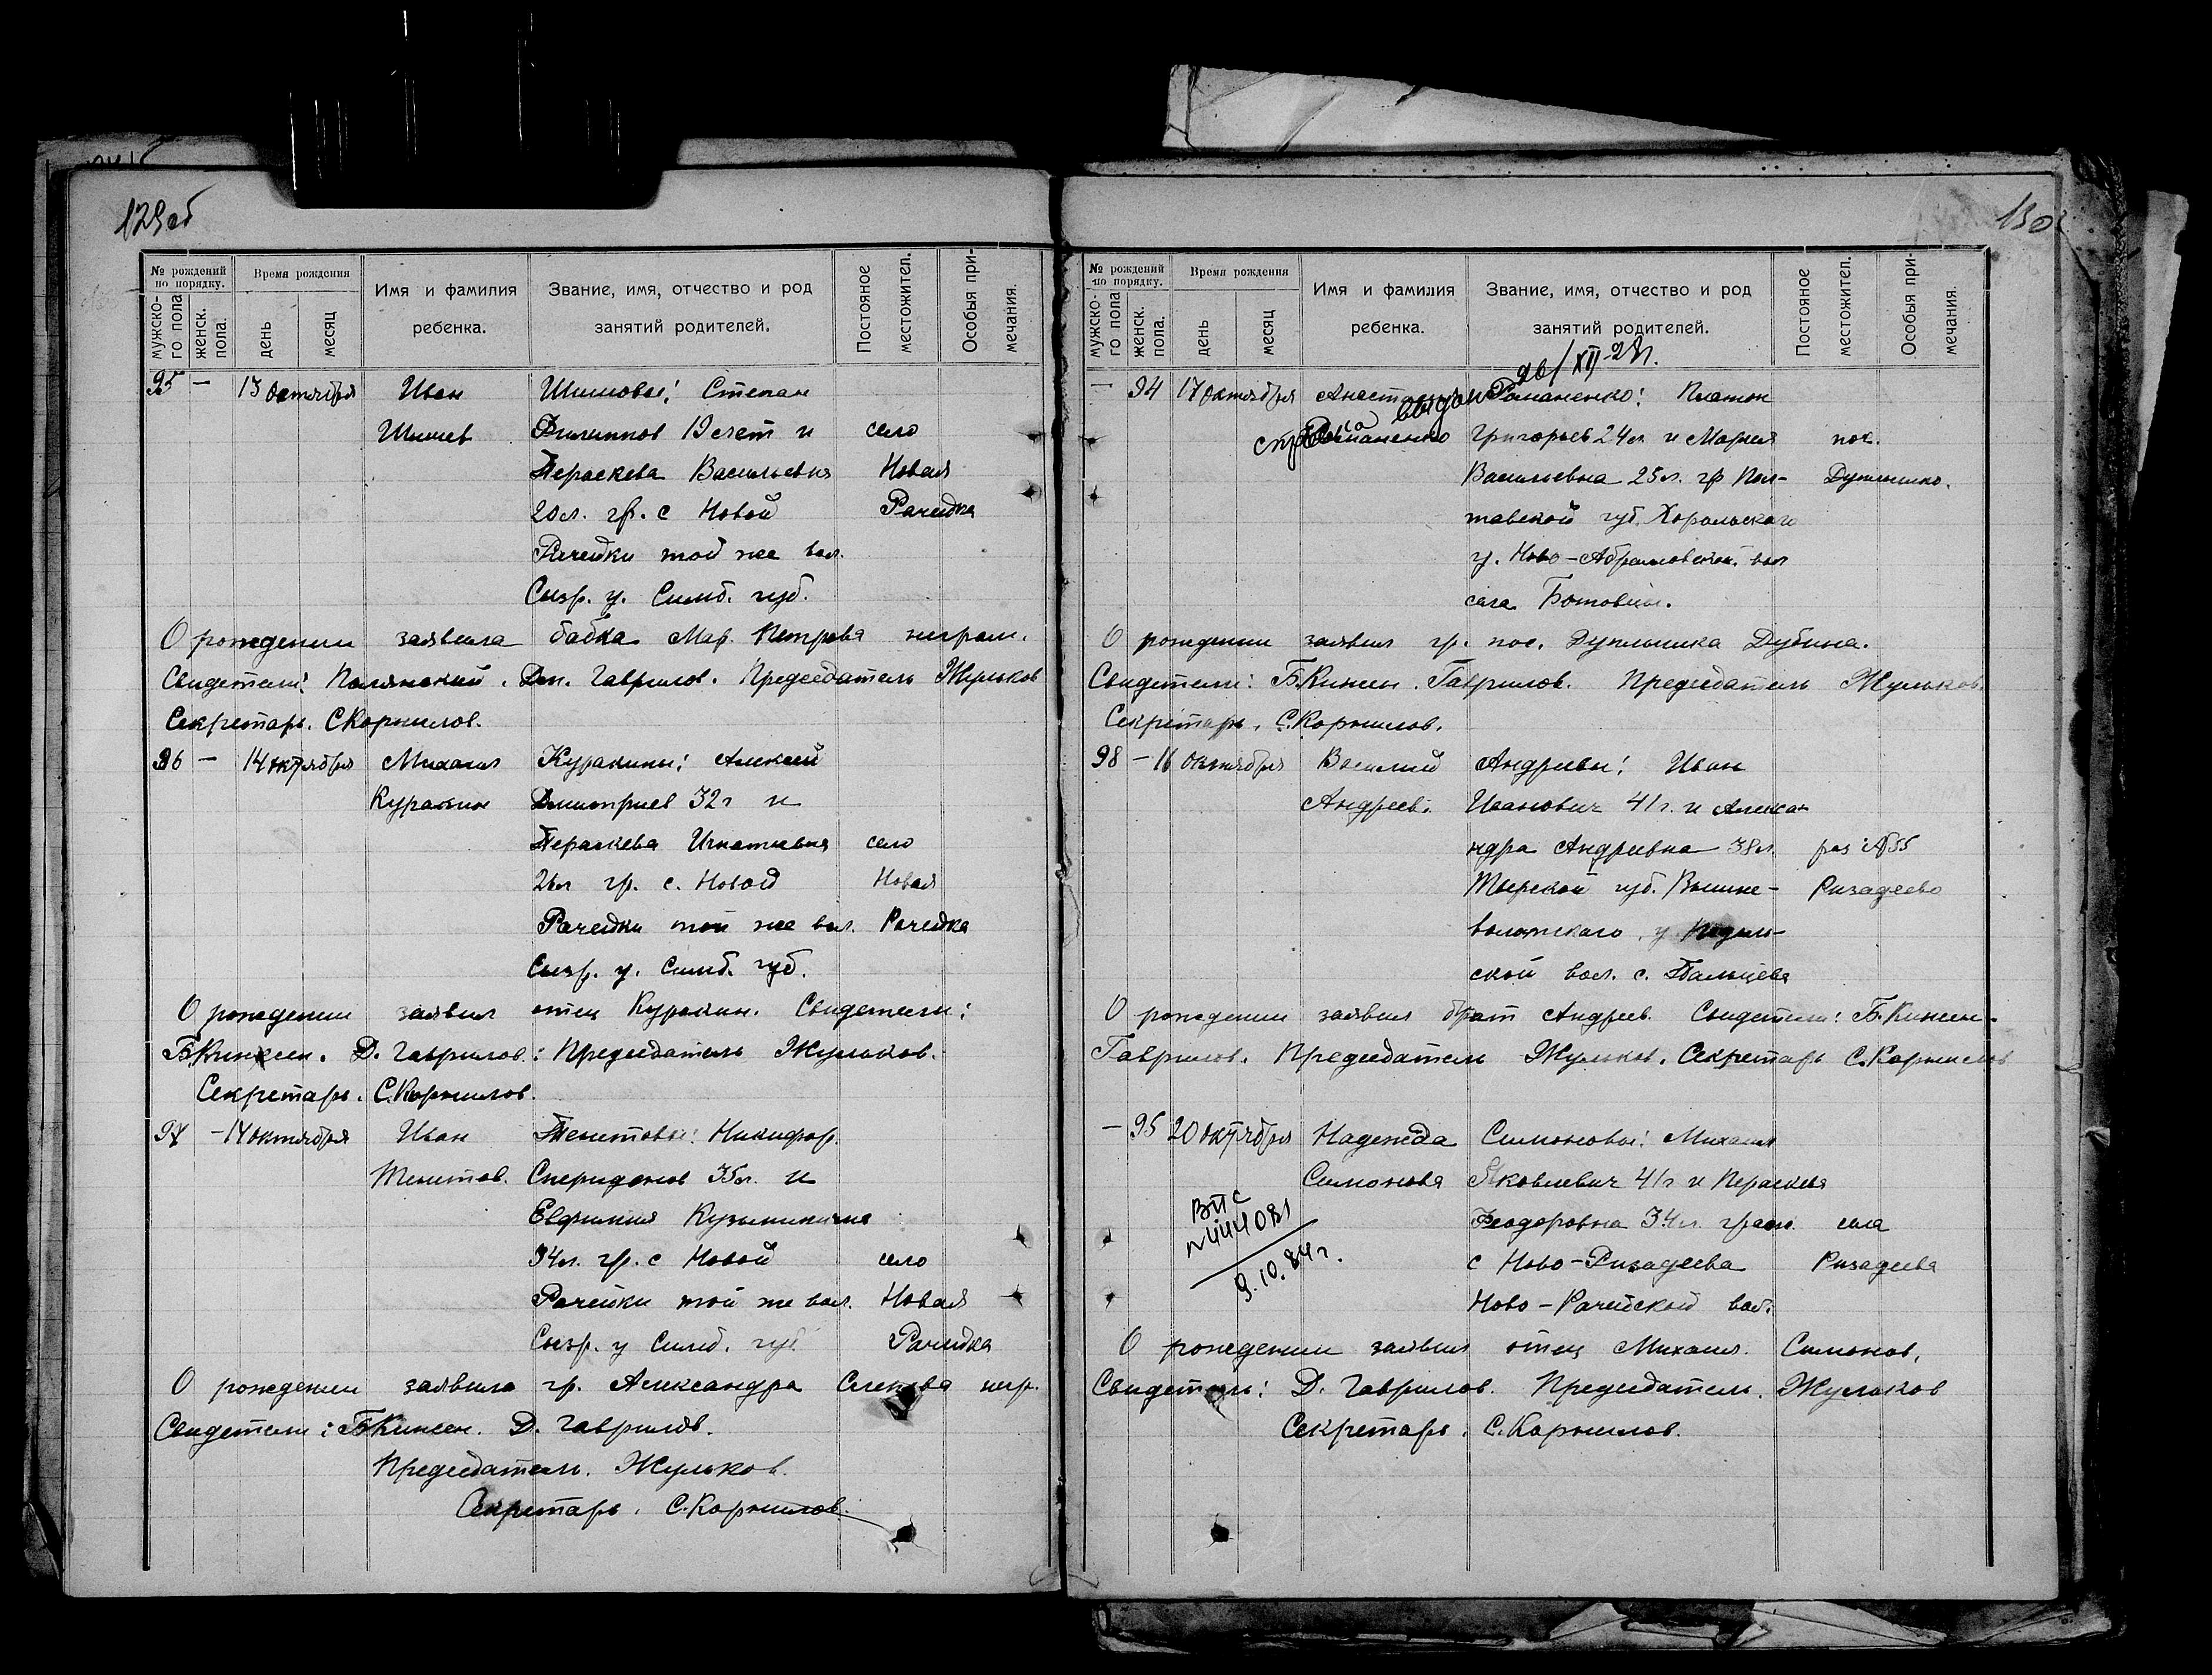 129об
№ рождений по порядку.
Время рождения
Имя и фамилия ребенка.
Звание, имя, отчество и род занятий родителей.
Постояное местожител.
Особыя примечания.
мужского пола
женск. пола.
день
месяц
95 — 13 октября Иван
Степан
Филиппов 19 лет и село
Пераскева Васильевна Новая
20л. гр. с Новой Рачейка
Рачейки той же вол.
Сызр. у. Симб. губ.
О рождении заявила бабка Мар. Петрова неграм.
Свидетели: Полянский. Дм. Гаврилов. Председатель Жульков
Секретарь. С.Корнилов.
96 — 14 октября Михаил Куракины: Алексей
Куракин Дмитриев 32г и
Пераскева Игнатьевна село
26л гр. с. Новой Новая
Рачейки той же вол. Рачейка
Сызр. у. Симб. губ.
О рождении заявил отец Куракин. Свидетели:
Д. Гаврилов. Председатель Жульков.
Секретарь. С.Корнилов.
97 — 14 октября Иван Никифор
Спиридонов 35л. и
Евфимия
34л. гр. с Новой село
Рачейки той же вол. Новая
Сызр. у Симб. губ. Рачейка
О рождении заявила гр. Александра негр.
Свидетели: Д. Гаврилов.
Председатель. Жульков.
Секретарь. С.Корнилов.
130
№ рождений по порядку.
Время рождения
Имя и фамилия ребенка.
Звание, имя, отчество и род занятий родителей.
Постояное местожител.
Особыя примечания.
мужского пола
женск. пола.
день
месяц
— 94 17 октября Романенко: Платон
Романенко Григорьев 24л. и Мария пос.
Васильевна 25л. гр Пол-
тавской губ. Хорольскаго
у. Ново-Абрамовской вол
села
О рождении заявил гр. пос. Дубина.
Свидетели: Гаврилов. Председатель Жульков.
Секретарь. С.Корнилов.
98 — 16 октября Василий Андреевы: Иван
Андреев. Иванович 41г. и Алекса-
ндра Андреевна 38л. раз №55
Тверской губ. Вышне- Ризадеево
волотскаго у
ской вол. с.
О рождении заявил брат Андреев. Свидетели:
Гаврилов. Председатель Жульков. Секретарь С.Корнилов
— 95 20 октября Надежда Симоновы: Михаил
Симонова Яковлевич 41г и Пераскева
Феодоровна 34л. граж. села
с Ново-Ризадеева Ризадеева
Ново-Рачейской вол.
9.10.84г.
О рождении заявил отец Михаил Симонов.
Свидетель: Д. Гаврилов. Председатель. Жульков
Секретарь. С.Корнилов.